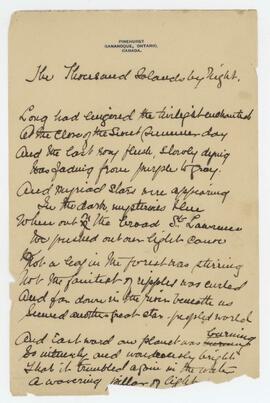 PINEHURST
GANANOQUE, ONTARIO,
CANADA.
The Thousand Islands by Night.
Long had lingered the twilight enchanted
At the close of the Sweet Summer day
And the last rosy flush slowly dying
Was fading from purple to gray.
And myriad stars were appearing
In the dark mysterious blue
When out on the broad St Lawrence
We pushed out our light canoe
Not a leaf in the forest was stirring
Not the faintest of ripples was curled
And far down in the river beneath us
Seemed another great star peopled world
And Eastward one planet was burning
So intensely and wondrously bright
That it trembled again in the water
A wavering pillar of light